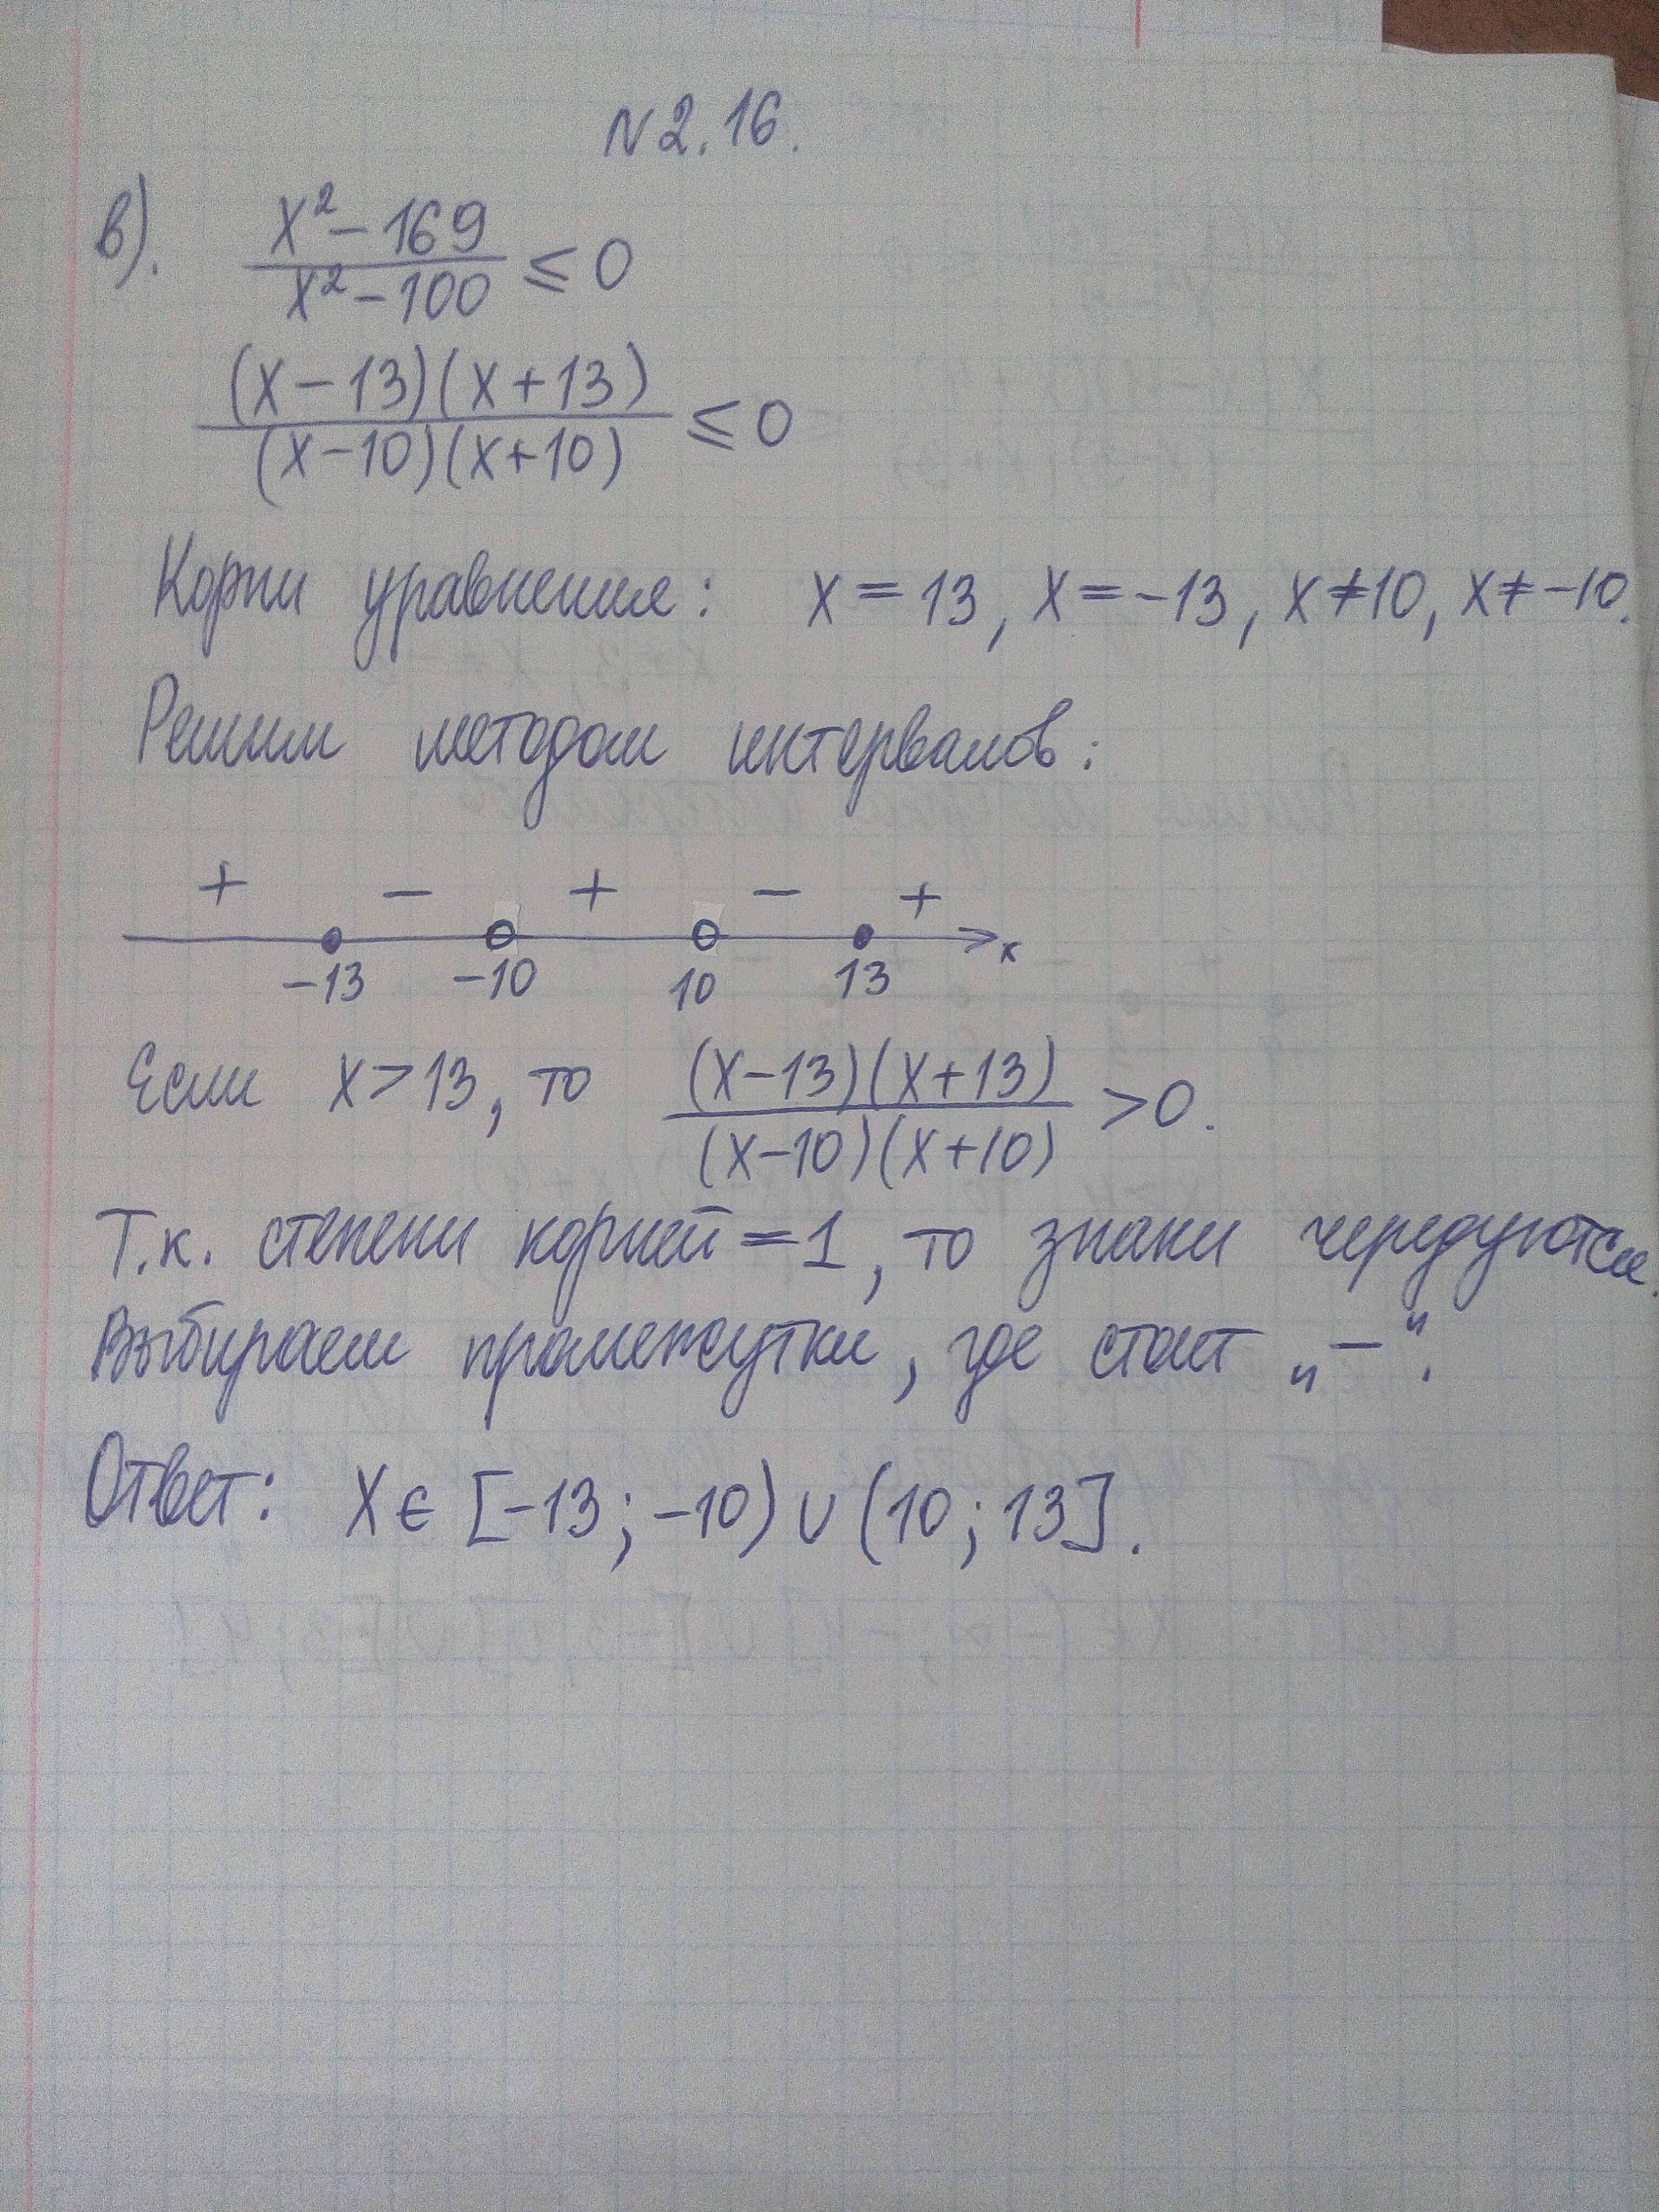 N 2.16.
в). x² - 169 / x² - 100 ≤ 0
(x - 13)(x + 13) / (x - 10)(x + 10) ≤ 0
Корни уравнения: x = 13, x = -13, x ≠ 10, x ≠ -10.
Решим методом интервалов:
+ - + - +
-13 -10 10 13 x
Если x > 13, то (x - 13)(x + 13) / (x - 10)(x + 10) > 0.
Т.к. степени корней = 1, то знаки чередуются.
Выбираем промежутки, где стоит „-“.
Ответ: x ∈ [-13; -10) ∪ (10; 13].